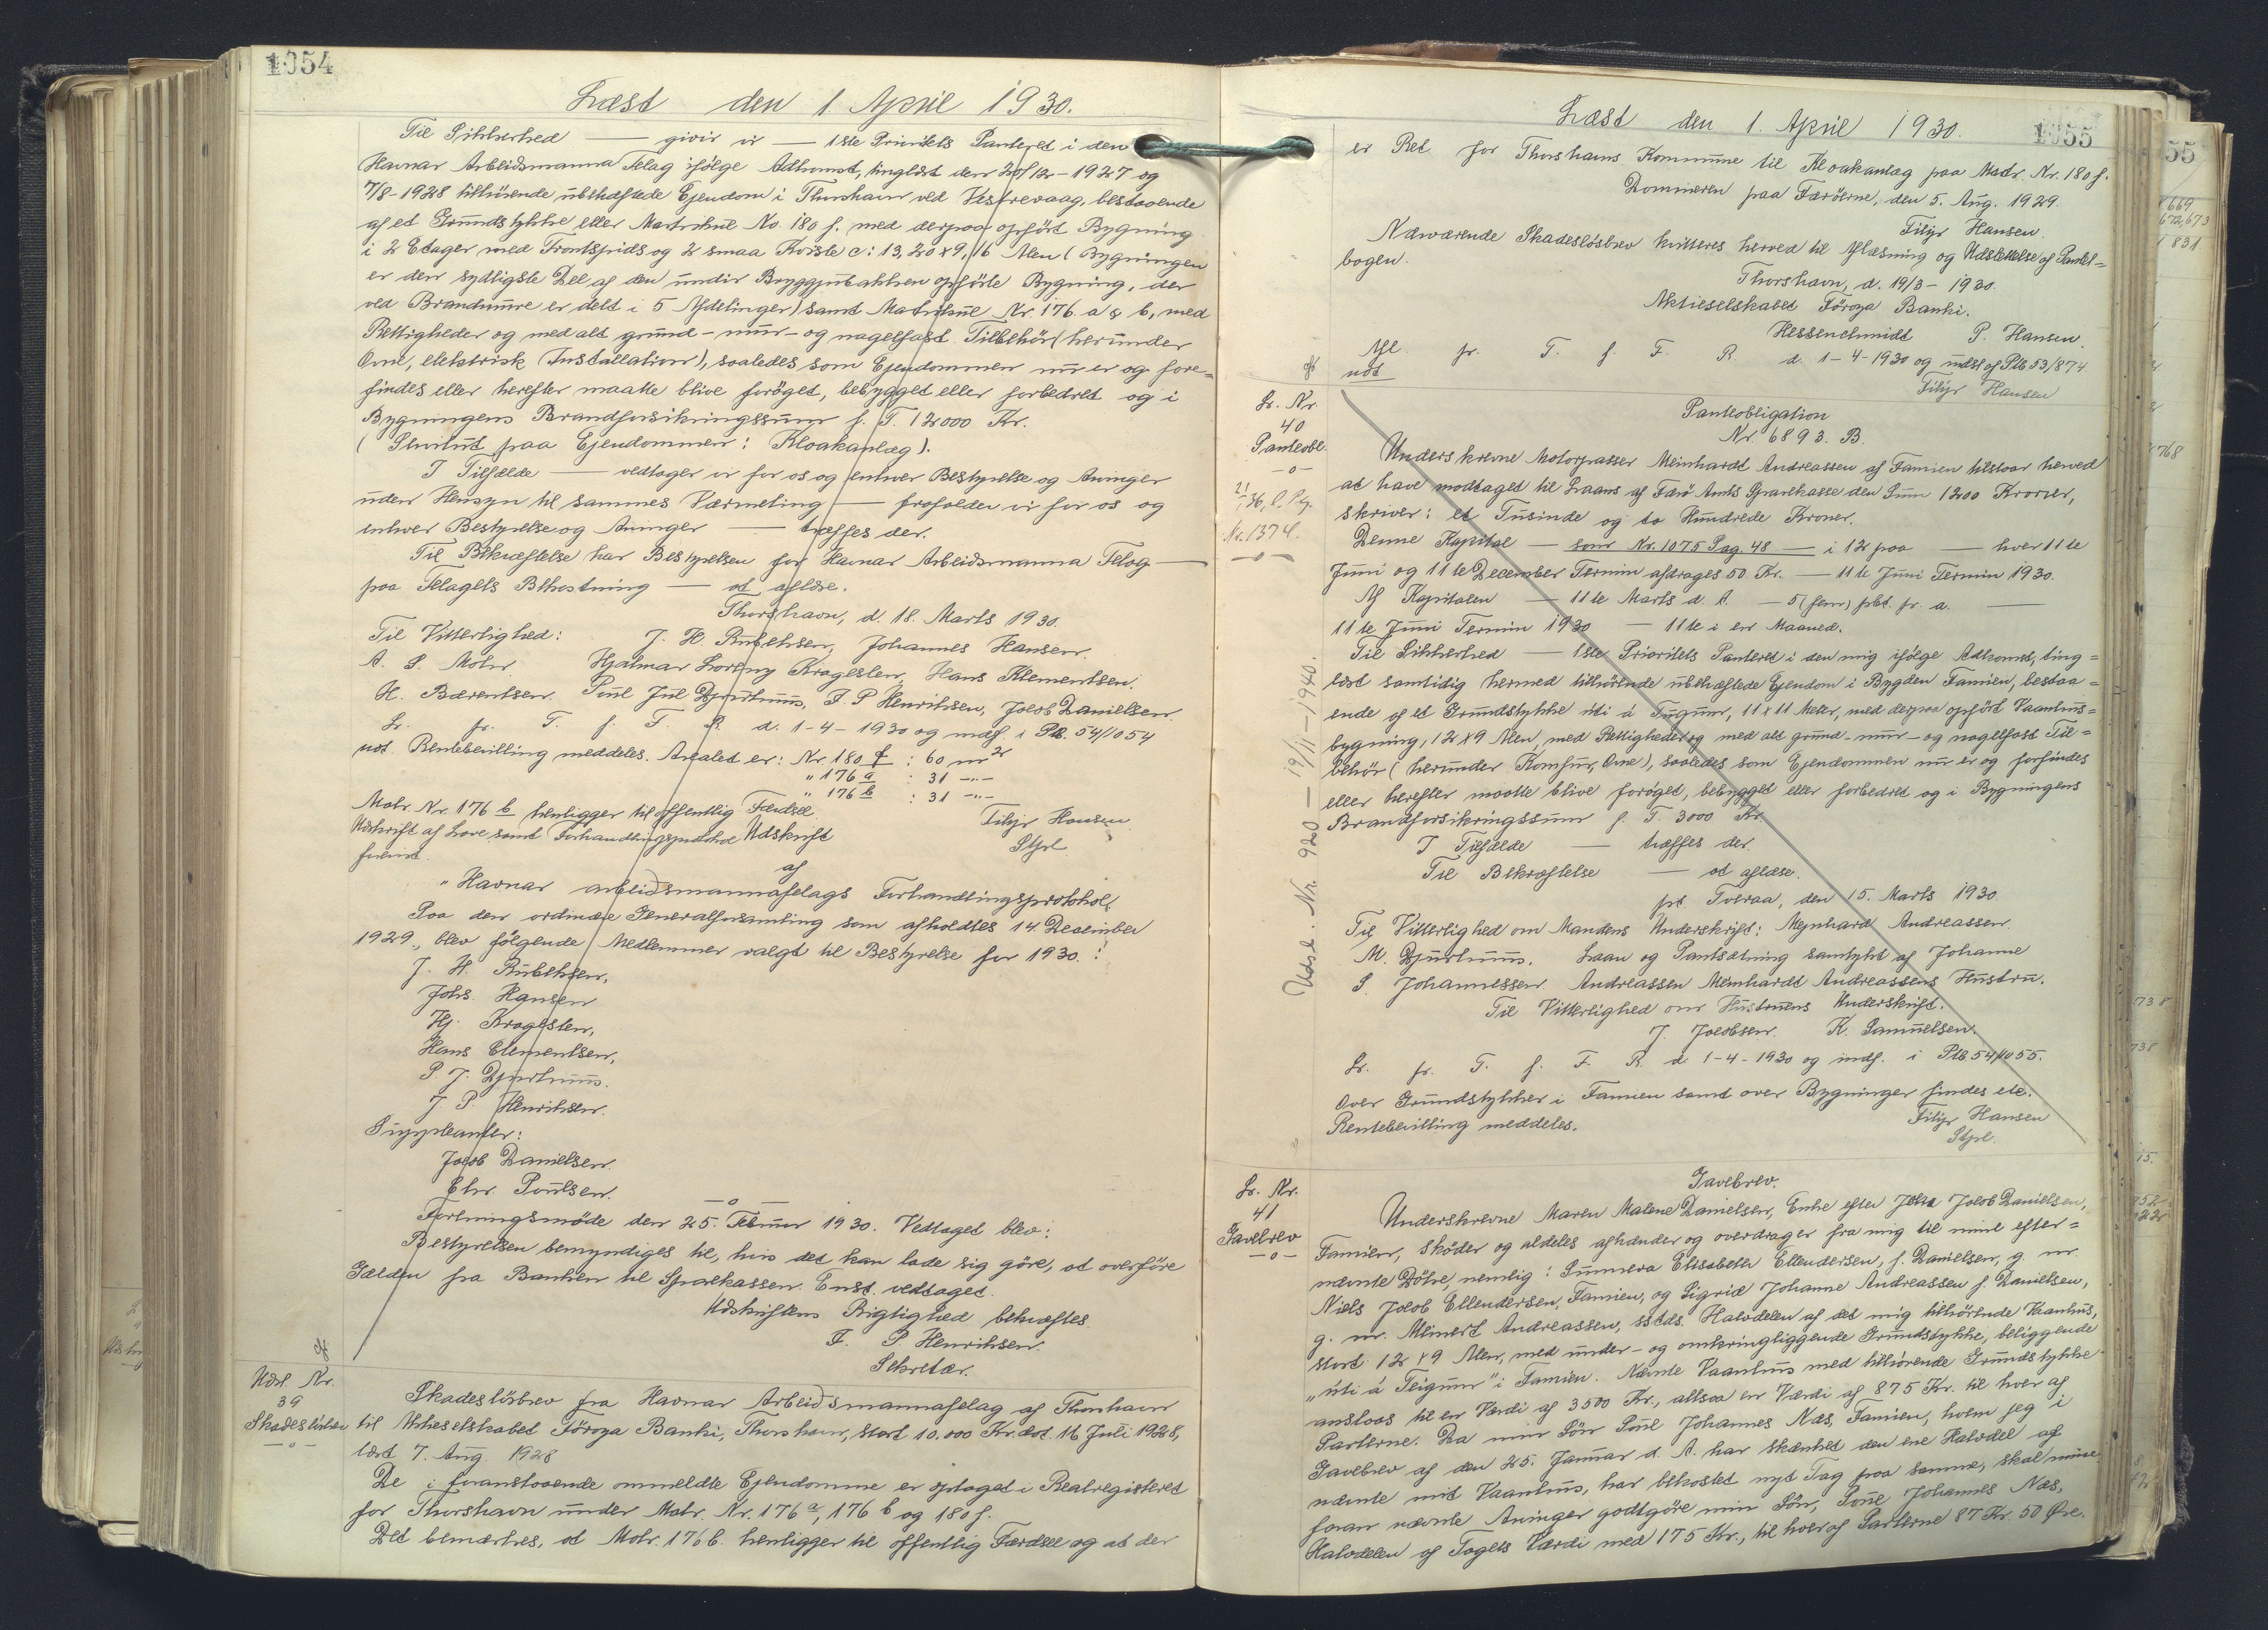 1054
Læst den 1. April 1930.
Til Sikkerhed — giver vi — 1ste Prioritets Panteret i den
Havnar Arbeidsmanna Felag ifølge Adkomst, tinglæst den 20/12-1927 og
7/8-1928 tilhørende ubehæftede Ejendom i Thorshavn ved Vestrevaag, bestaaende
af et Grundstykke eller Matrikul No. 180 f. med derpaa opført Bygning
i 2 Etager med Frontspids og 2 smaa Kviste c: 13,20 x 9,16 Alen (Bygningen
er den sydligste Del af den under Bryggjubakken opførte Bygning, der
ved Brandmure er delt i 5 Afdelinger) samt Matrikul Nr. 176 a & b, med
Rettigheder og med alt grund- mur- og nagelfast Tilbehør (herunder
Ovne, elektrisk Installation), saaledes som Ejendommen nu er og fore=
findes eller herefter maatte blive forøget, bebygget eller forbedret og i
Bygningens Brandforsikringssum f. T. 12000 Kr.
(Servitut paa Ejendommen: Kloakanlæg).
I Tilfælde — vedtager vi for os og enhver Bestyrelse og Arvinger
uden Hensyn til sammes Værneting — forholder vi for os og
enhver Bestyrelse og Arvinger — træffes der.
Til Bekræftelse har Bestyrelsen for Havnar Arbeidsmanna Felag —
paa Felagets Bekostning — at aflæse.
Thorshavn, d. 18. Marts 1930.
Til Vitterlighed: J. H. Rubeksen, Johannes Hansen.
A. S. Mohr. Hjalmar Loreny Kragesteen, Hans Klementsen.
H. Bærentsen. Poul Jul Djurhuus, J. P Henriksen, Jacob Danielsen.
Lr. fr. T. f. F. R. d. 1-4-1930 og indf. i Ptb. 54/1054
not. Rentebevilling meddeles. Arealet er: Nr. 180 f : 60 m2
" 176 a : 31 -"-
" 176 b : 31 -"-
Matr. Nr. 176 b henligger til offentlig Færdsel.
Filip Hansen
Udskrift af Love samt Forhandlingsprotokol Udskrift
Stfr.
forevist.
af
"Havnar arbeidsmannafelags Forhandlingsprotokol.
Paa den ordinære Generalforsamling som afholdtes 14. December
1929., blev følgende Medlemmer valgt til Bestyrelse for 1930.:
J. H. Rubeksen,
Johs. Hansen
Hj. Kragesteen,
Hans Clementsen,
P. J. Djurhuus.
J. P. Henriksen.
Suppleanter:
Jacob Danielsen.
Chr. Poulsen.
—o—
Foreningsmøde den 25. Februar 1930. Vedtaget blev:
Bestyrelsen bemyndiges til, hvis det kan lade sig göre, at overföre
Gælden fra Banken til Sparekassen. Enst. vedtaget.
Udskriftens Rigtighed bekræftes.
J. P. Henriksen.
Sekretær.
Udsl. Nr.
39
Skadesløsbrev
—o—
Skadesløsbrev fra Havnar Arbeidsmannafelag af Thorshavn
til Aktieselskabet Föroya Banki, Thorshavn, stort 10.000 Kr. dat. 16 Juli 1928,
læst 7. Aug. 1928
De i foranstaaende ommeldte Ejendomme er optaget i Realregisteret
for Thorshavn under Matr. Nr. 176 a, 176 b og 180 f.
Det bemærkes, at Matr. 176 b. henligger til offentlig Færdsel og at der
1055
Læst den 1. April 1930.
er Ret for Thorshavns Kommune til Kloakanlæg paa Matr. Nr. 180 f.
Dommeren paa Færöerne, den 5. Aug. 1929.
Filip Hansen.
Nærværende Skadesløsbrev kvitteres herved til Aflæsning og Udslettelse af Pante=
bogen.
Thorshavn, d. 19/3-1930.
Aktieselskabet Föroya Banki.
Hessenschmidt P. Hansen.
Afl. fr. T. f. F. R. d. 1-4-1930 og udsl af Ptb 53/874
not
Filip Hansen
Lr. Nr.
40
Panteobl.
—o—
21/1 36, C. Pg.
Nr. 1374.
—o—
Udsl. Nr. 920 — 19/11-1940
Panteobligation
Nr. 6893. B.
Underskrevne Motorpasser Meinhardt Andreassen af Famien tilstaar herved
at have modtaget til Laans af Færö Amts Sparekasse den Sum 1200 Kroner,
skriver: et Tusinde og to Hundrede Kroner.
Denne Kapital — som Nr. 1075 Pag. 48 — i 12 paa — hver 11te
Juni og 11te December Termin afdrages 50 Kr. — 11te Juni Termin 1930.
Af Kapitalen — 11te Marts d. A. — 5 (fem) pCt. pr. a. —
11te Juni Termin 1930 — 11te i en Maaned.
Til Sikkerhed — 1ste Prioritets Panteret i den mig ifølge Adkomst, ting=
læst samtidig hermed tilhørende ubehæftede Ejendom i Bygden Famien, bestaa=
ende af et Grundstykke úti á Teigum, 11 x 11 Meter, med derpaa opført Vaanhus=
bygning, 12 x 9 Alen, med Rettigheder og med alt grund- mur- og nagelfast Til=
behör (herunder Komfur, Ovne), saaledes som Ejendommen nu er og forfindes
eller herefter maatte blive forøget, bebygget eller forbedret og i Bygningens
Brandforsikringssum f. T. 3000 Kr.
I Tilfælde — træffes der.
Til Bekræftelse — at aflæse.
pt. Tveraa, den 15. Marts 1930.
Til Vitterlighed om Mandens Underskrift: Mejnhard Andreassen.
M. Djurhuus. Laan og Pantsætning samtykt af Johanne
S. Johannessen. Andreassen Meinhardt Andreassens Hustru.
Til Vitterlighed om Hustruens Underskrift.
J. Jacobsen. K. Samuelsen.
Lr. fr. T. f. F. R. d. 1-4-1930 og indf. i Ptb 54/1055.
Over Grundstykker i Famien samt over Bygninger findes etc.
Rentebevilling meddeles.
Filip Hansen
Stfr.
Lr. Nr.
41
Gavebrev
—o—
Gavebrev.
Underskrevne Maren Malene Danielsen, Enke efter Jacob Danielsen,
Famien, skøder og aldeles afhænder og overdrager fra mig til mine efter=
nævnte Døtre, nemlig: Sunneva Elisabeth Ellendersen, f. Danielsen, g. m.
Niels Jacob Ellendersen, Famien, og Sigrid Johanne Andreassen f. Danielsen,
g. m. Meinert Andreassen, sstds. Halvdelen af det mig tilhørende Vaanhus,
stort 12 x 9 Alen, med under- og omkringliggende Grundstykke, beliggende
"úti á Teigum" i Famien. Nævnte Vaanhus med tilhørende Grundstykke
anslaas til en Værdi af 3500 Kr., altsaa en Værdi af 875 Kr. til hver af
Parterne. Da min Søn Poul Johannes Næs, Famien, hvem jeg i
Gavebrev af den 25. Januar d. A. har skænket den ene Halvdel af
nævnte mit Vaanhus, har bekostet nyt Tag paa samme, skal mine
foran nævnte Arvinger godtgøre min Søn, Poul Johannes Næs,
Halvdelen af Tagets Værdi med 175 Kr., til hver af Parterne 87 Kr. 50 Øre.